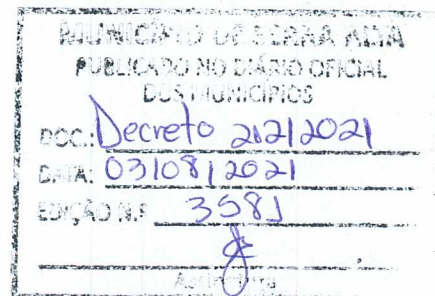 MUNICÍPIO DE SERRA ALTA
PUBLICADO NO DIÁRIO OFICIAL
DOS MUNICÍPIOS
DOC.: Decreto 212/2021
DATA: 03/08/2021
EDIÇÃO N.º 3581
Assinatura